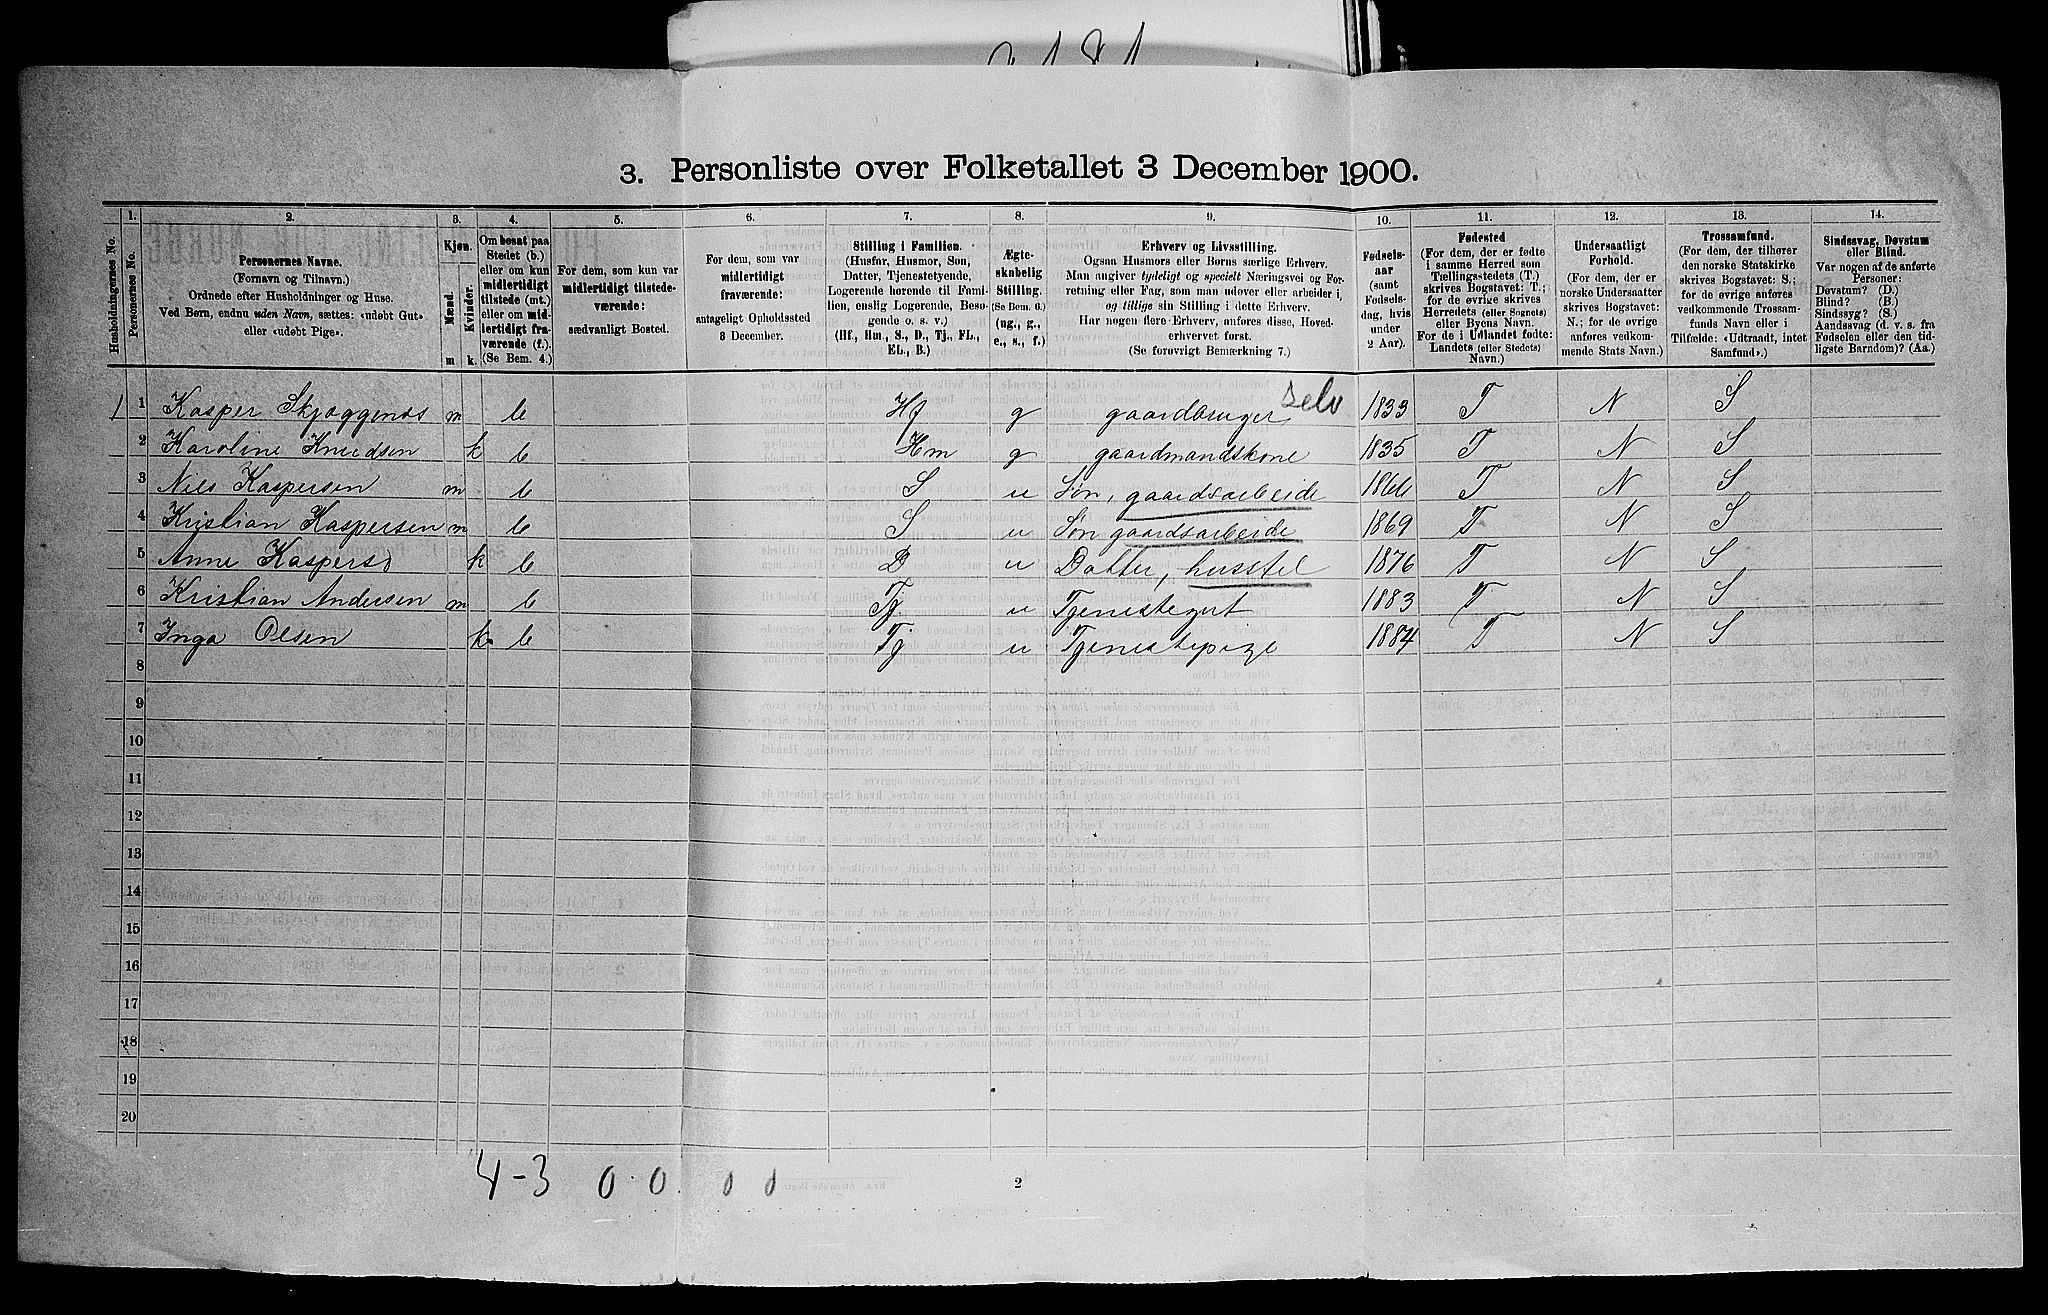 3. Personliste over Folketallet 3 December 1900.
1. 2. 3. 4. 5. 6. 7. 8. 9. 10. 11. 12. 13. 14.
Husholdningernes No.
Personernes No.
Personernes Navne.
(Fornavn og Tilnavn.)
Ordnede efter Husholdninger og Huse.
Ved Børn, endnu uden Navn, sættes: «udøbt Gut»
eller «udøbt Pige».
Kjøn.
Mænd. Kvinder.
m k.
Om bosat paa
Stedet (b.)
eller om kun
midlertidigt
tilstede (mt.)
eller om mid-
lertidigt fra-
værende (f.).
(Se Bem. 4.)
For dem, som kun var
midlertidigt tilstede-
værende:
sædvanligt Bosted.
For dem, som var
midlertidigt
fraværende:
antageligt Opholdssted
3 December.
Stilling i Familien.
(Husfar, Husmor, Søn,
Datter, Tjenestetyende,
Logerende hørende til Fami-
lien, enslig Logerende, Besø-
gende o. s. v.)
(Hf., Hm., S., D., Tj., FL.,
EL., B.)
Ægte-
skabelig
Stilling.
(Se Bem. 6.)
(ug., g.,
e., s., f.)
Erhverv og Livsstilling.
Ogsaa Husmors eller Børns særlige Erhverv.
Man angiver tydeligt og specielt Næringsvei og For-
retning eller Fag, som man udøver eller arbeider i,
og tillige sin Stilling i dette Erhverv.
Har nogen flere Erhverv, anføres disse, Hoved-
erhvervet først.
(Se forøvrigt Bemærkning 7.)
Fødsels-
aar
(samt
Fødsels-
dag, hvis
under
2 Aar).
Fødested
(For dem, der er fødte
i samme Herred som
Tællingsstedets (T.)
skrives Bogstavet: T.;
for de øvrige skrives
Herredets (eller Sognets)
eller Byens Navn.
For de i Udlandet fødte:
Landets (eller Stedets)
Navn.)
Undersaatligt
Forhold.
(For dem, der er
norske Undersaatter
skrives Bogstavet:
N.; for de øvrige
anføres vedkom-
mende Stats Navn.)
Trossamfund.
(For dem, der tilhører
den norske Statskirke
skrives Bogstavet: S.;
for de øvrige anføres
vedkommende Trossam-
funds Navn eller i
Tilfælde: «Udtraadt, intet
Samfund».)
Sindssvag, Døvstum
eller Blind.
Var nogen af de anførte
Personer:
Døvstum? (D.)
Blind? (B.)
Sindssyg? (S.)
Aandssvag (d. v. s. fra
Fødselen eller den tid-
ligste Barndom)? (Aa.)
selv
1 1 Kasper Skjæggenæs m b Hf g gaardbruger 1833 T N S
2 Karoline Knudsen k b Hm g gaardmandskone 1835 T N S
3 Nils Kaspersen m b S u Søn, gaardsarbeide 1866 T N S
4 Kristian Kaspersen m b S u Søn gaardsarbeide 1869 T N S
5 Anne Kaspersd k b D u Datter, husstel 1876 T N S
6 Kristian Andersen m b Tj. u Tjenestegut 1883 T N S
7 Inga Olsen k b Tj u Tjenestepige 1884 T N S
8
9
10
11
12
13
14
15
16
17
18
19
20
4-3 0.0. 0 0
2